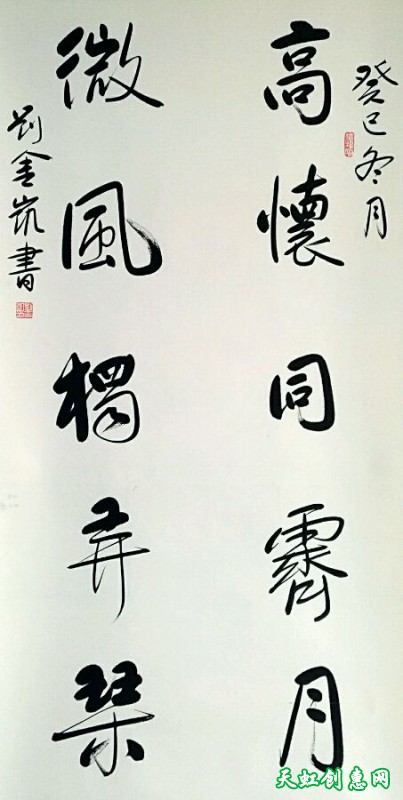 癸巳冬月
高懷同霽月
微風獨弄琹
刘金凱書
天虹创惠网